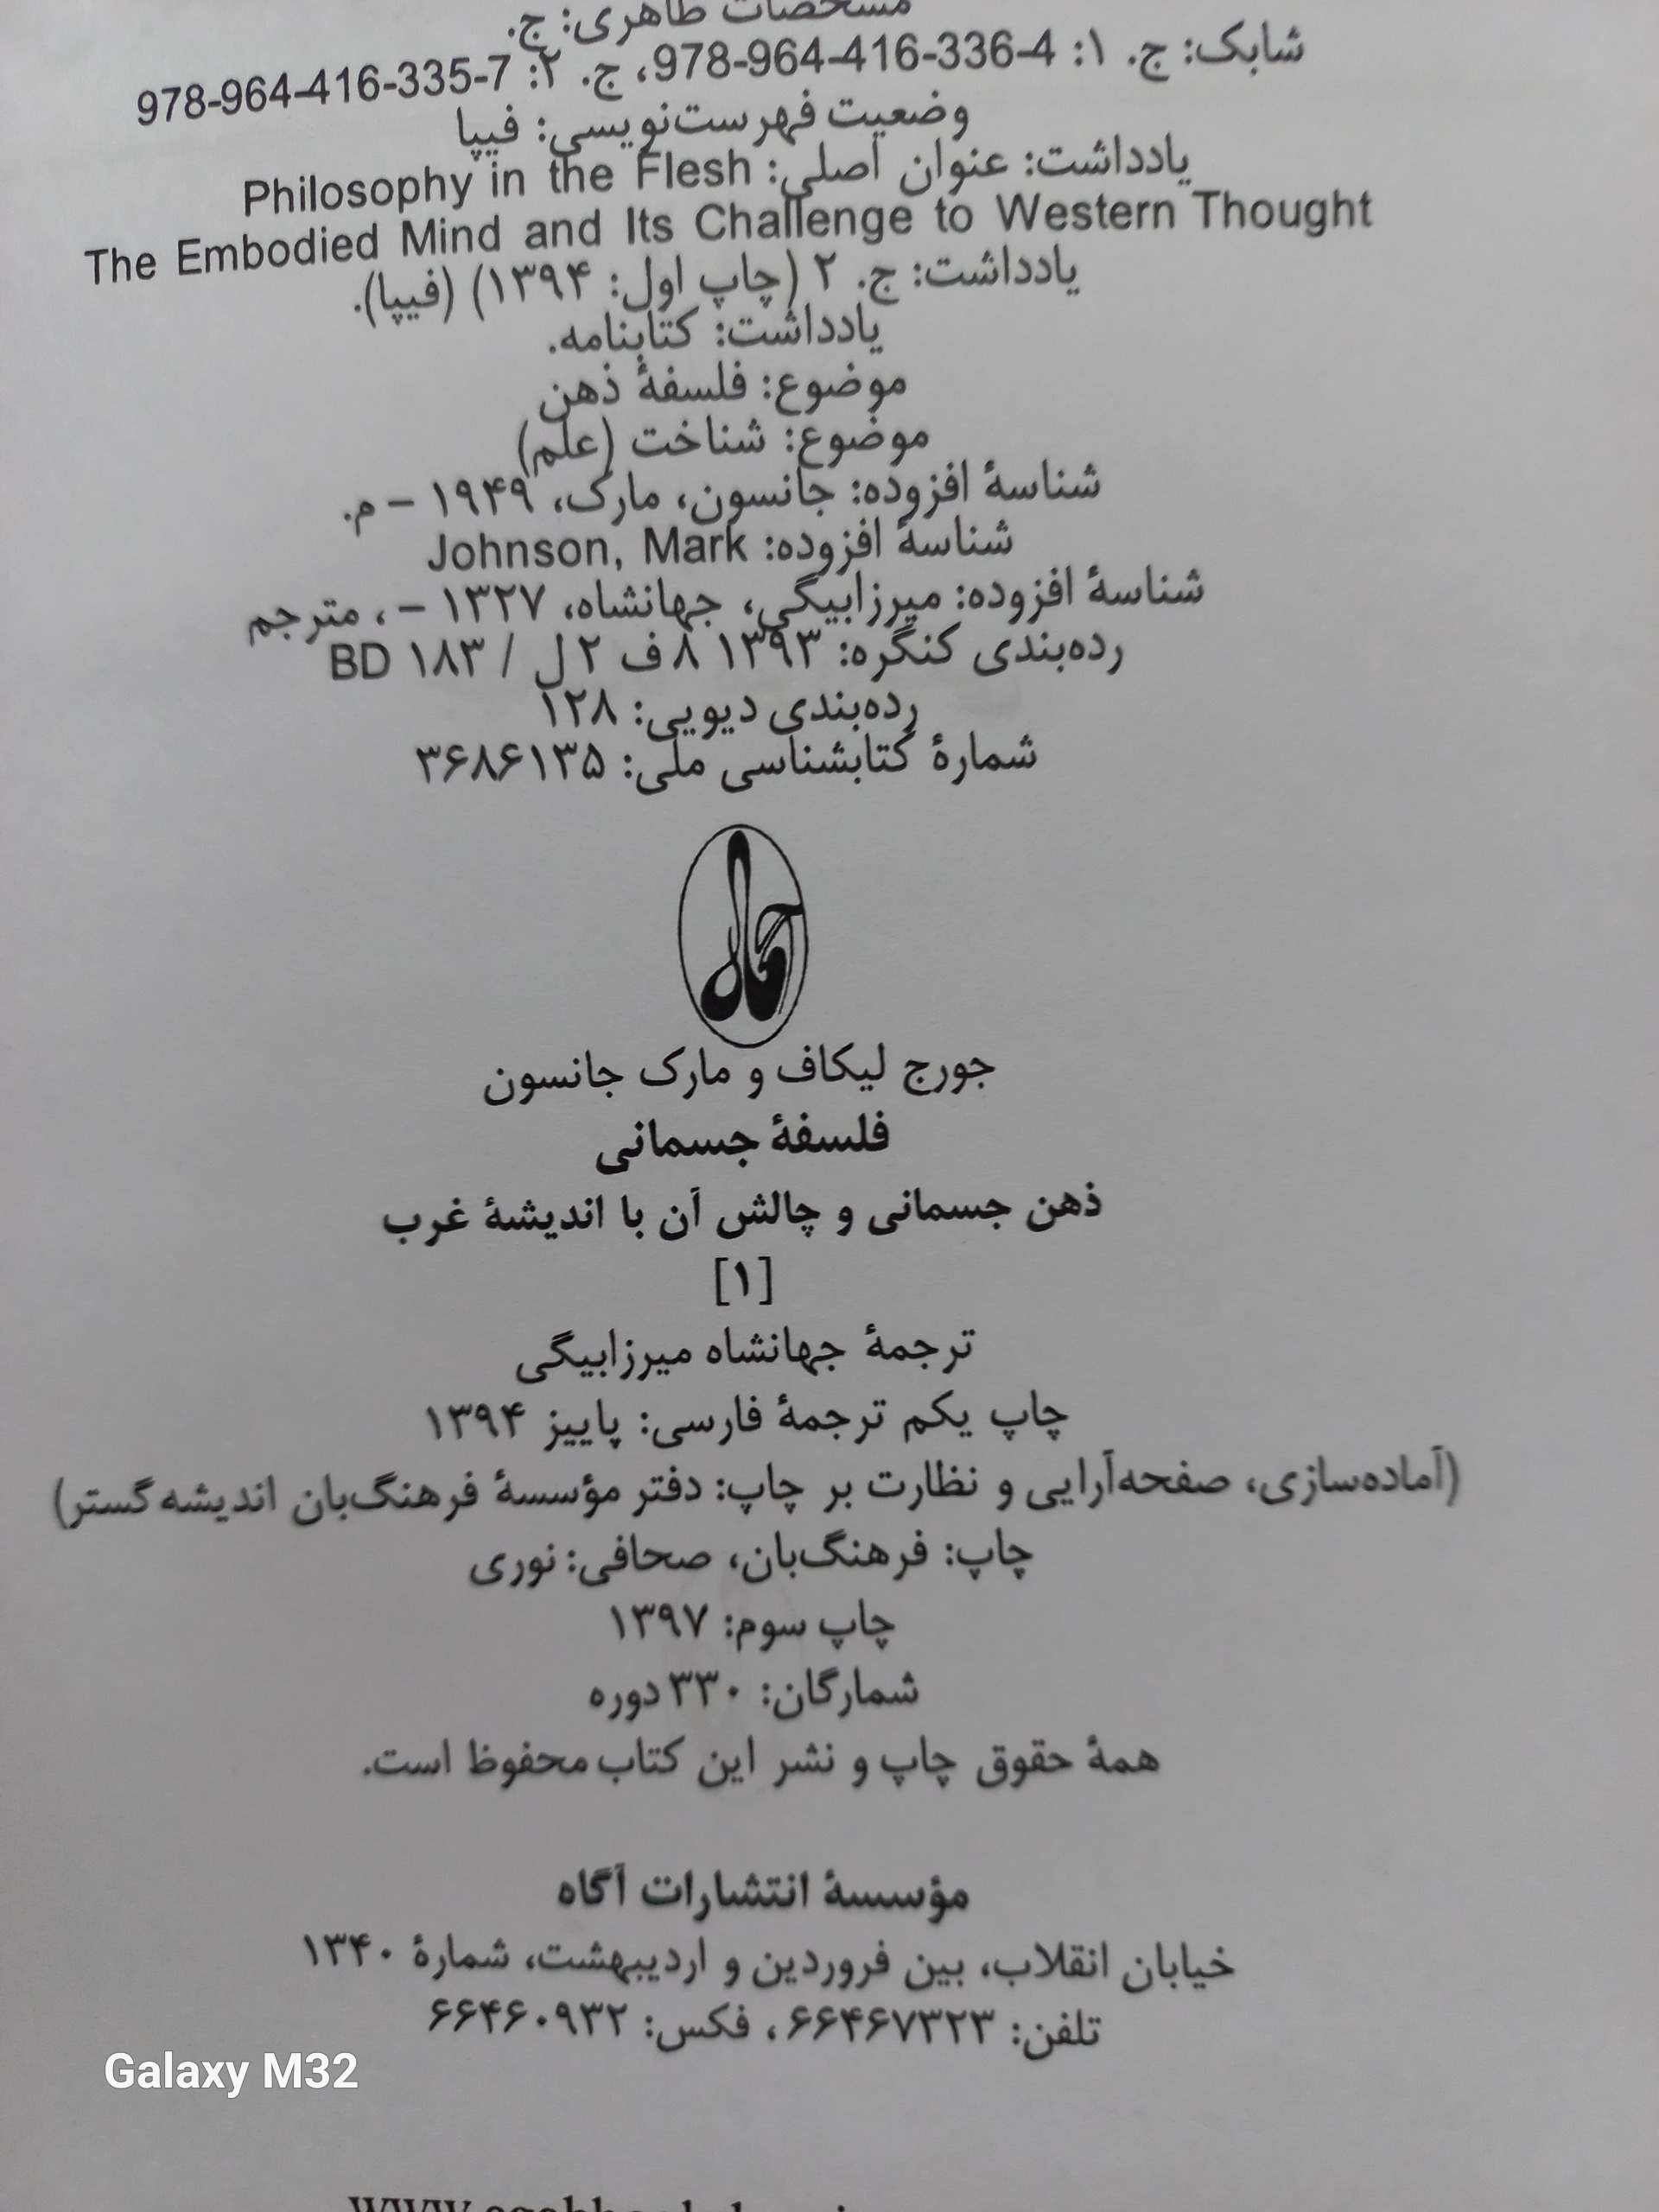 مشخصات ظاهری: ج.
شابک: ج. ۱: 978-964-416-336-4، ج. ۲: 978-964-416-335-7
وضعیت فهرست‌نویسی: فیپا
یادداشت: عنوان اصلی: Philosophy in the Flesh
The Embodied Mind and Its Challenge to Western Thought
یادداشت: ج. ۲ (چاپ اول: ۱۳۹۴) (فیپا).
یادداشت: کتابنامه.
موضوع: فلسفهٔ ذهن
موضوع: شناخت (علم)
شناسهٔ افزوده: جانسون، مارک، ۱۹۴۹ – م.
شناسهٔ افزوده: Johnson, Mark
شناسهٔ افزوده: میرزابیگی، جهانشاه، ۱۳۲۷ – ، مترجم
رده‌بندی کنگره: ۱۳۹۳ ۸ف ۲ل / BD ۱۸۳
رده‌بندی دیویی: ۱۲۸
شمارهٔ کتابشناسی ملی: ۳۶۸۶۱۳۵
آگاه
جورج لیکاف و مارک جانسون
فلسفهٔ جسمانی
ذهن جسمانی و چالش آن با اندیشهٔ غرب
[۱]
ترجمهٔ جهانشاه میرزابیگی
چاپ یکم ترجمهٔ فارسی: پاییز ۱۳۹۴
(آماده‌سازی، صفحه‌آرایی و نظارت بر چاپ: دفتر مؤسسهٔ فرهنگ‌بان اندیشه گستر)
چاپ: فرهنگ‌بان، صحافی: نوری
چاپ سوم: ۱۳۹۷
شمارگان: ۳۳۰ دوره
همهٔ حقوق چاپ و نشر این کتاب محفوظ است.
مؤسسهٔ انتشارات آگاه
خیابان انقلاب، بین فروردین و اردیبهشت، شمارهٔ ۱۳۴۰
تلفن: ۶۶۴۶۷۳۲۳، فکس: ۶۶۴۶۰۹۳۲
Galaxy M32